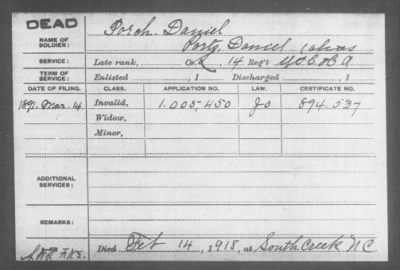 DEAD
NAME OF SOLDIER: Porch, Daniel
Porty, Daniel (alias
SERVICE: Late rank, Co. 14 Reg't
TERM OF SERVICE: Enlisted , 1 Discharged , 1
DATE OF FILING. CLASS. APPLICATION NO. LAW. CERTIFICATE NO.
1891. Mar. 14. Invalid, 1.005,450 874.537
Widow,
Minor,
ADDITIONAL SERVICES:
REMARKS:
Died Feb 14, 1918, at South Creek NC